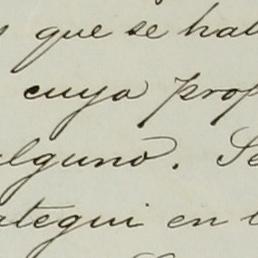 que se hal
cuya prop
alguno. Se
ategui en l